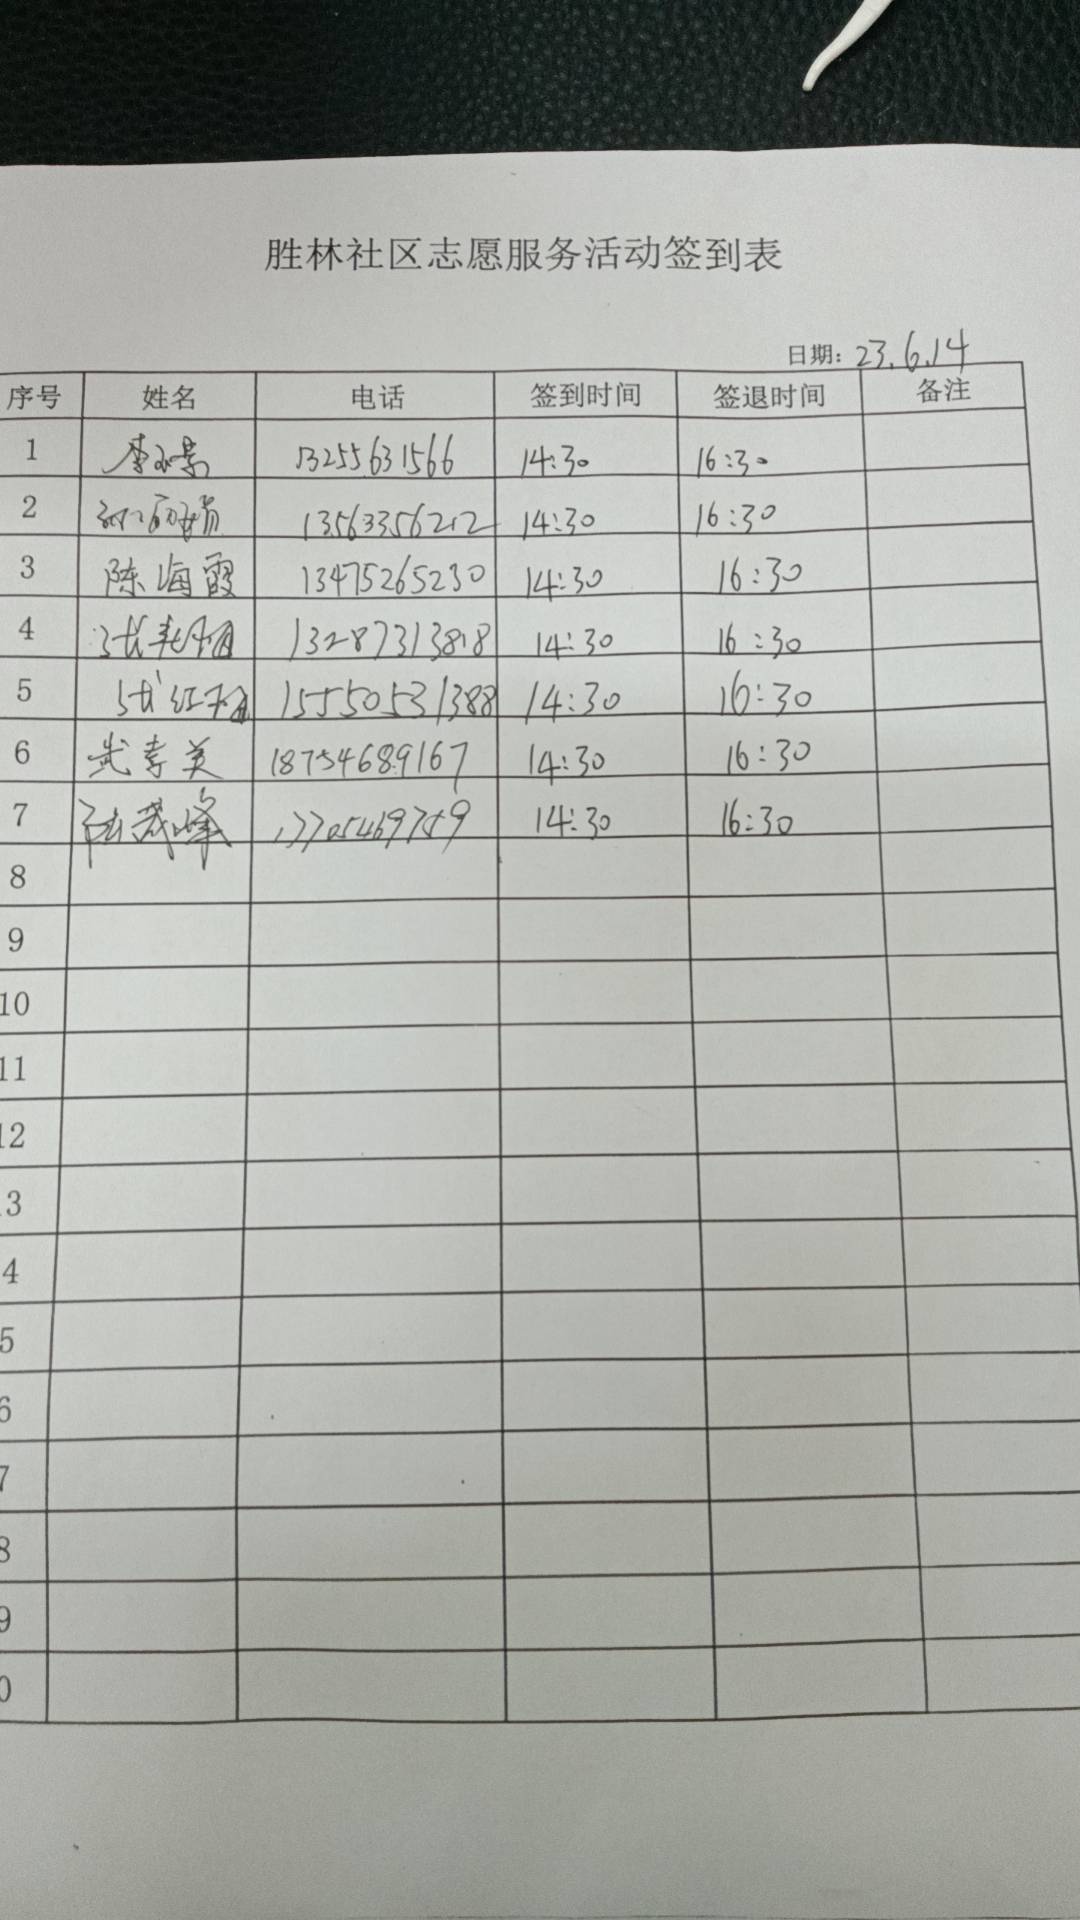 胜林社区志愿服务活动签到表
日期：23.6.14
序号 姓名 电话 签到时间 签退时间 备注
1 李玉景 13255631566 14:30 16:30
2 13563356212 14:30 16:30
3 陈海霞 13475265230 14:30 16:30
4 13287313818 14:30 16:30
5 15550531388 14:30 16:30
6 武孝美 18754689167 14:30 16:30
7 14:30 16:30
8
9
10
11
12
3
4
5
6
7
8
9
0